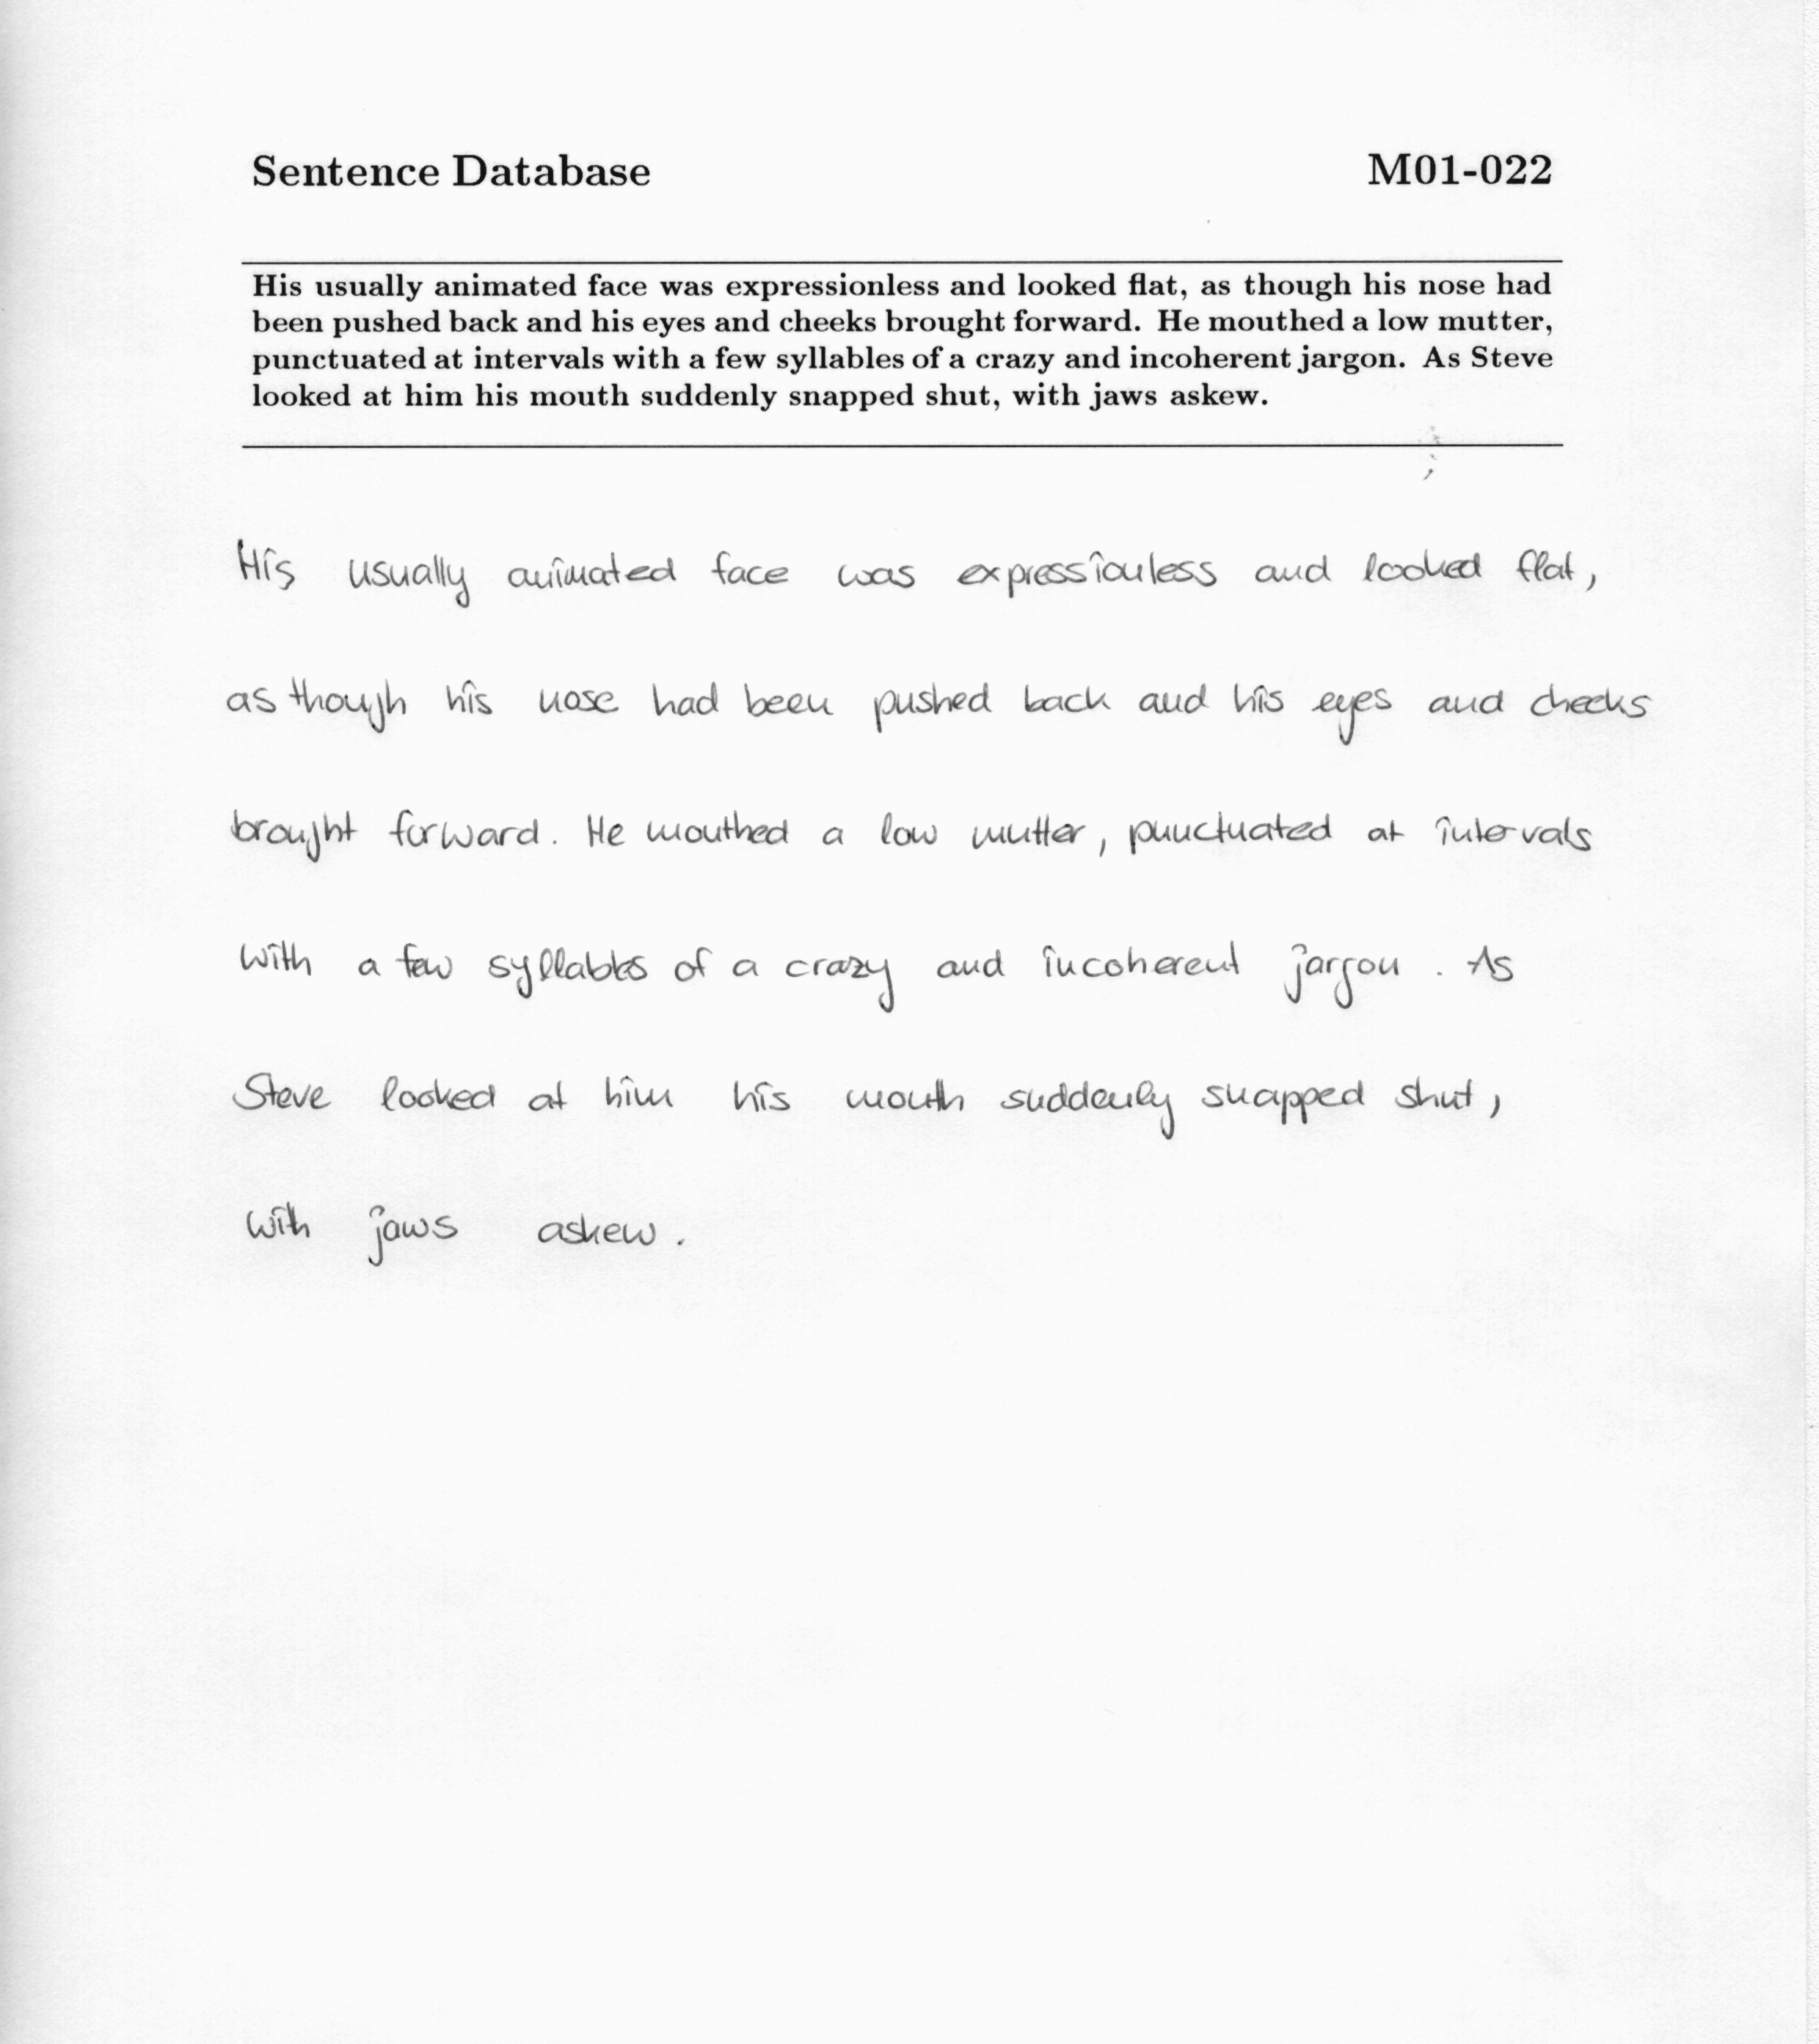 Sentence Database M01-022
His usually animated face was expressionless and looked flat, as though his nose had
been pushed back and his eyes and cheeks brought forward. He mouthed a low mutter,
punctuated at intervals with a few syllables of a crazy and incoherent jargon. As Steve
looked at him his mouth suddenly snapped shut, with jaws askew.
His usually animated face was expressionless and looked flat,
as though his nose had been pushed back and his eyes and cheeks
brought forward. He mouthed a low mutter, punctuated at intervals
with a few syllables of a crazy and incoherent jargon. As
Steve looked at him his mouth suddenly snapped shut,
with jaws askew.